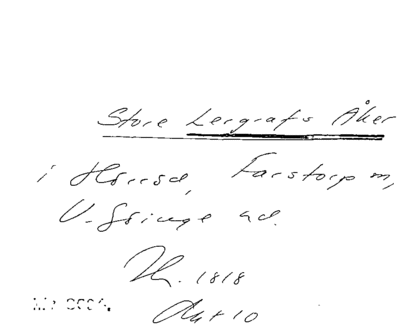 Store Lergrafs Åker
i Horröd, Farstorp m,
V. Göinge hd.
1818
Akt 10